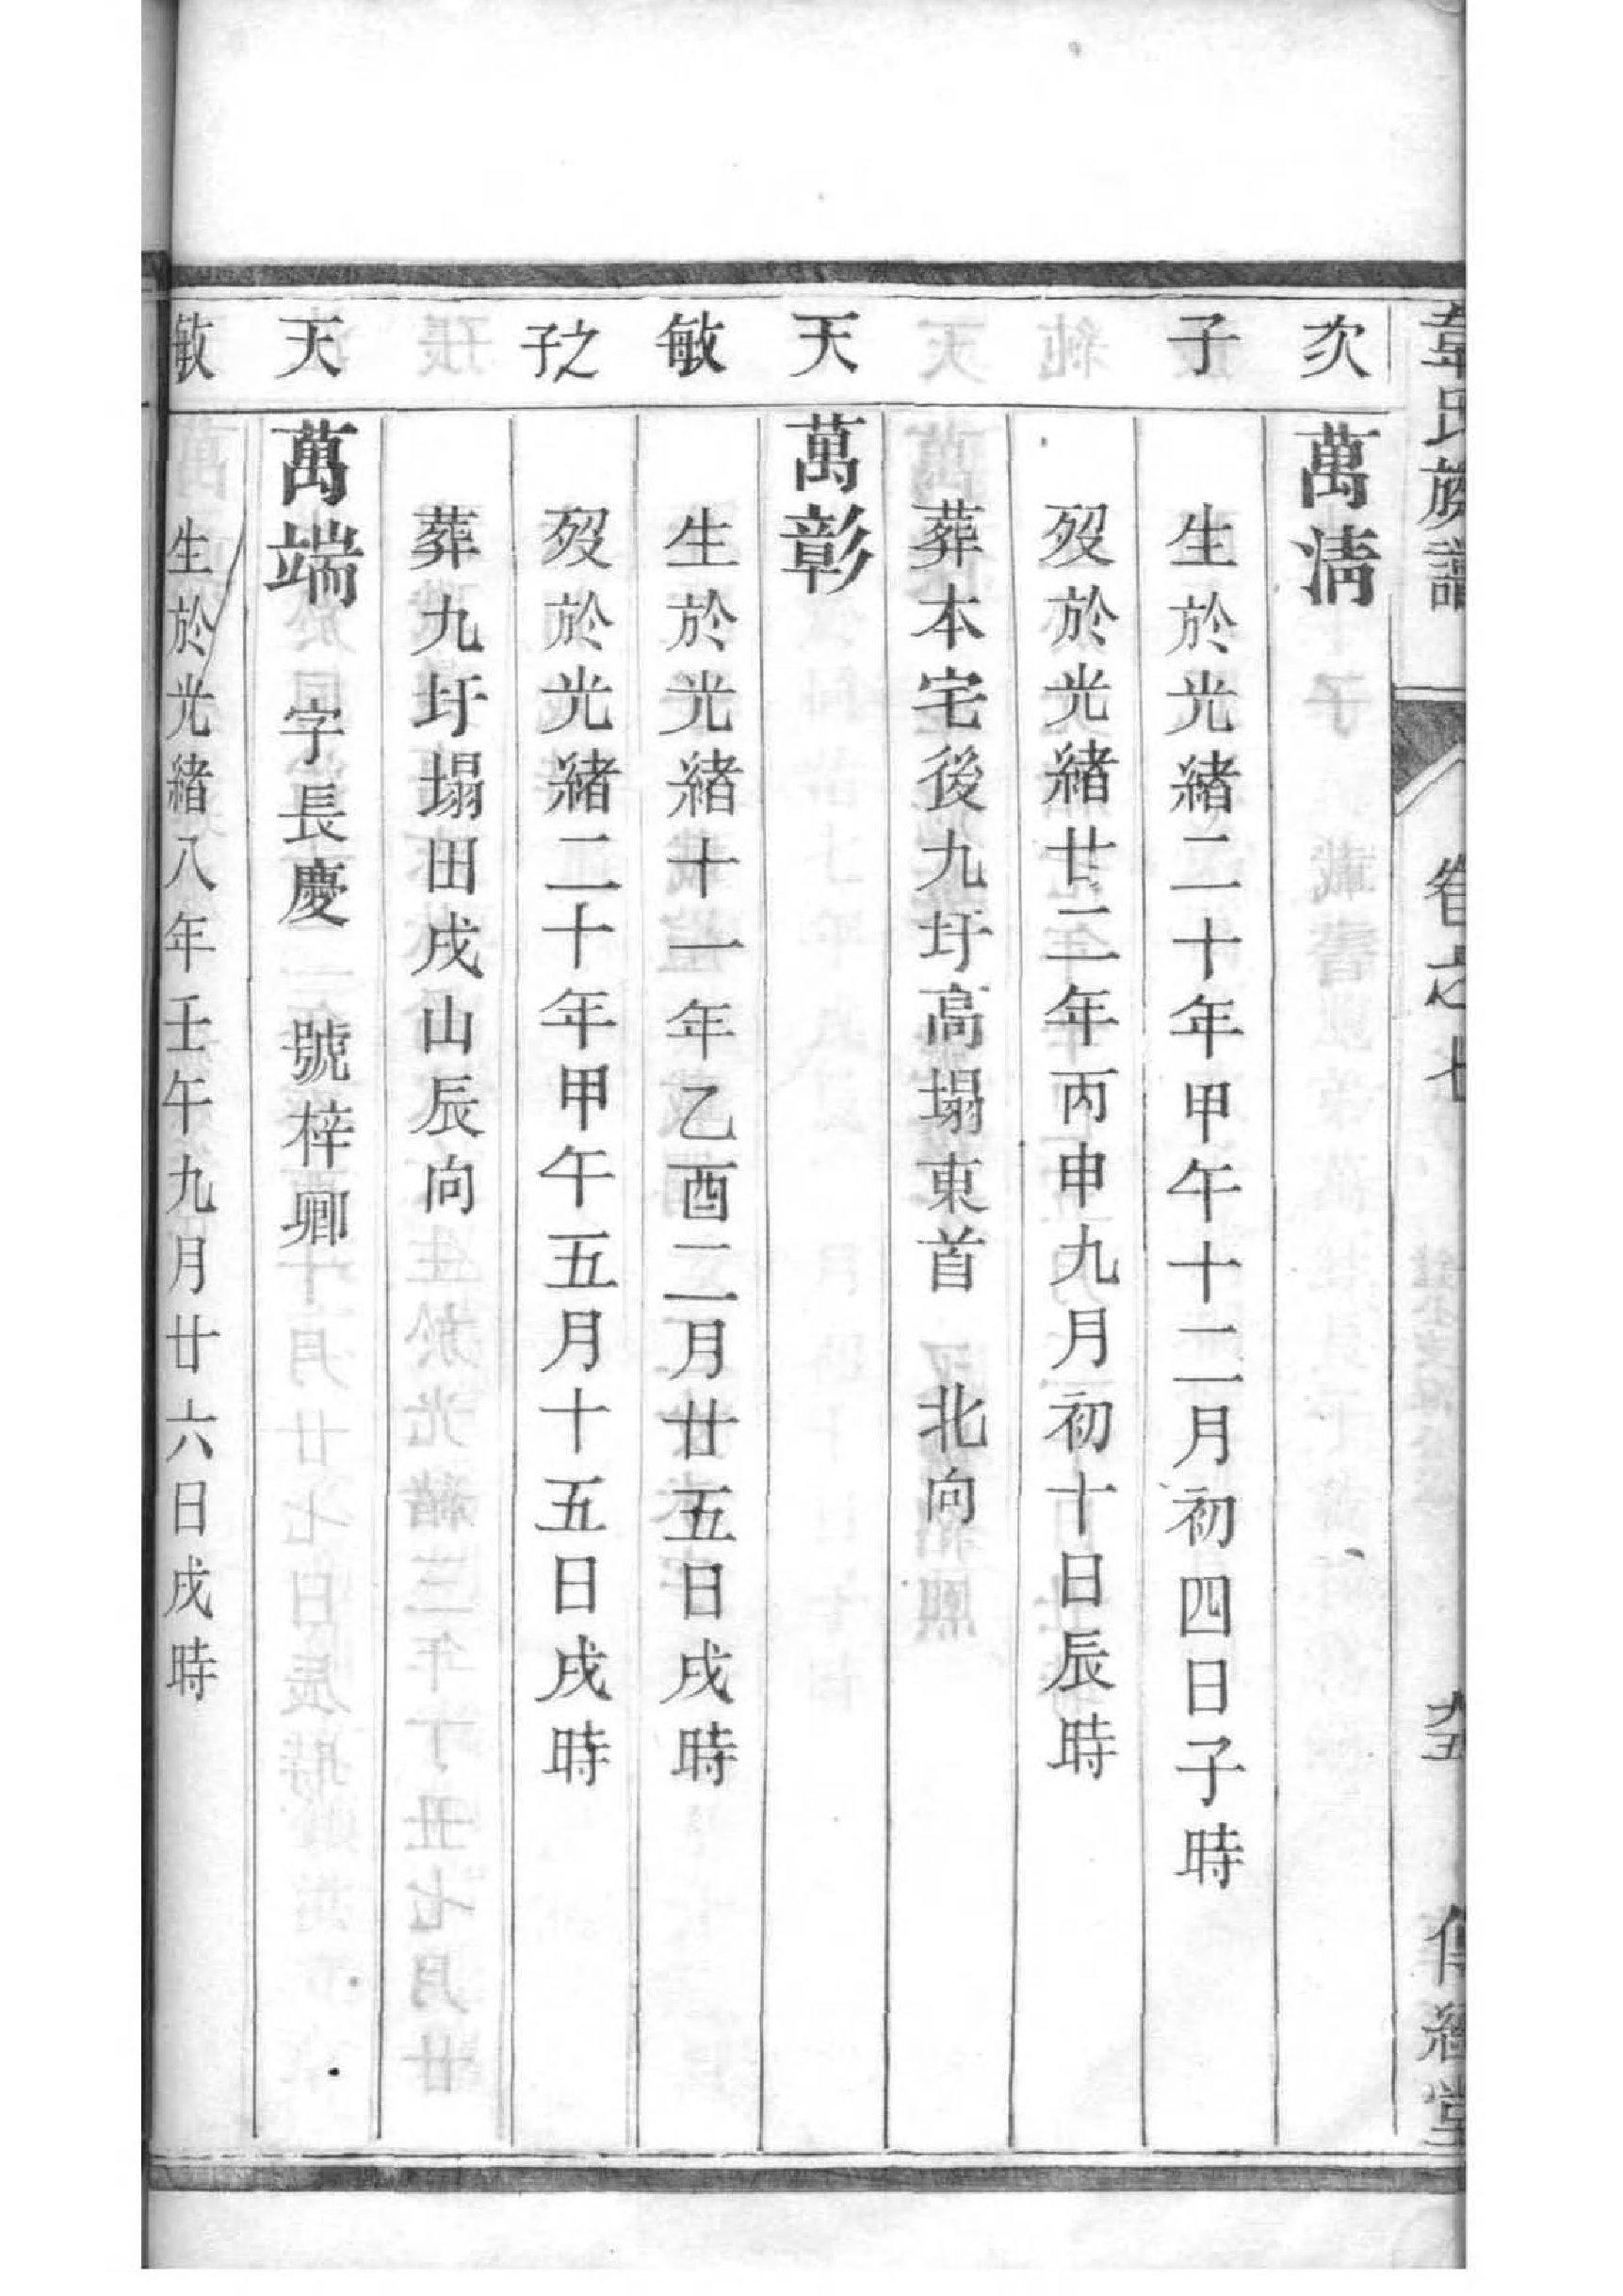 韋氏族譜 卷之七 九五 傳經堂
次 萬淸
子 生於光緒二十年甲午十二月初四日子時
歿於光緒廿二年丙申九月初十日辰時
葬本宅後九圩高塌東首 北向
天 萬彰
敏 生於光緒十一年乙酉二月廿五日戌時
之子 歿於光緒二十年甲午五月十五日戌時
葬九圩塌田戌山辰向
天 萬端 字長慶 號梓卿
敏 生於光緒八年壬午九月廿六日戌時